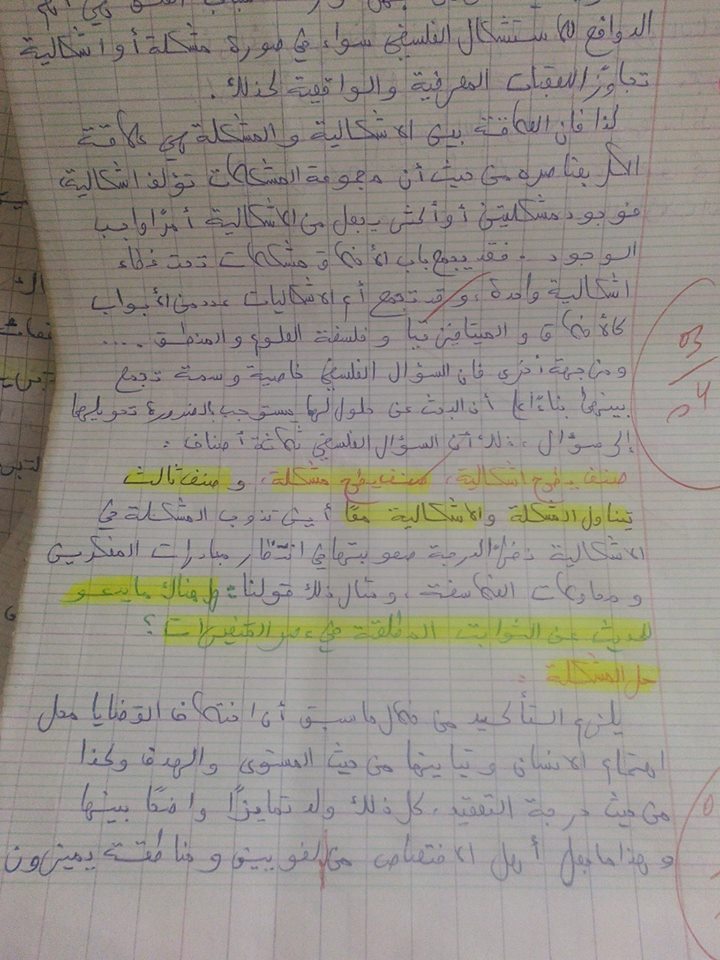 الدوافع للاستشكال الفلسفي سواء في صورة مشكلة أو اشكالية
تجاوز العقبات المعرفية والواقعية كذلك.
لذا فان العلاقة بين الاشكالية والمشكلة هي علاقة
الكل بعناصره من حيث أن مجموعة المشكلات تؤلف اشكالية،
فوجود مشكلتين أو أكثر يجعل من الاشكالية أمرًا واجب
الوجود. فقد يجمع باب الأخلاق مشكلات تحت غطاء
اشكالية واحدة، وقد تجمع أم الاشكاليات عدد من الأبواب
كالأخلاق والميتافيزيقيا وفلسفة العلوم والمنطق ....
ومن جهة أخرى فان السؤال الفلسفي خاصية وسمة تجمع
بينهما بناءًا على أن البحث عن حلول لها يستوجب بالضرورة تحويلها
إلى سؤال، ذلك أن السؤال الفلسفي ثلاثة أصناف:
صنف يطرح اشكالية، صنف يطرح مشكلة، وصنف ثالث
يتناول المشكلة والاشكالية معًا أين تذوب المشكلة في
الاشكالية نظرا لدرجة صعوبتها في انتظار مبادرات المفكرين
ومحاولات الفلاسفة، ومثال ذلك قولنا: هل هناك ما يدعو
للحديث عن الثوابت المطلقة في عصر المتغيرات؟
حل المشكلة:
يلزم التأكيد من خلال ما سبق أن اختلاف القضايا محل
اهتمام الانسان وتباينها من حيث المستوى والهدف وكذا
من حيث درجة التعقيد، كل ذلك ولد تمايزًا واضحًا بينها
وهذا ما جعل أهل الاختصاص من لغويين ومناطقة يميزون
03
04